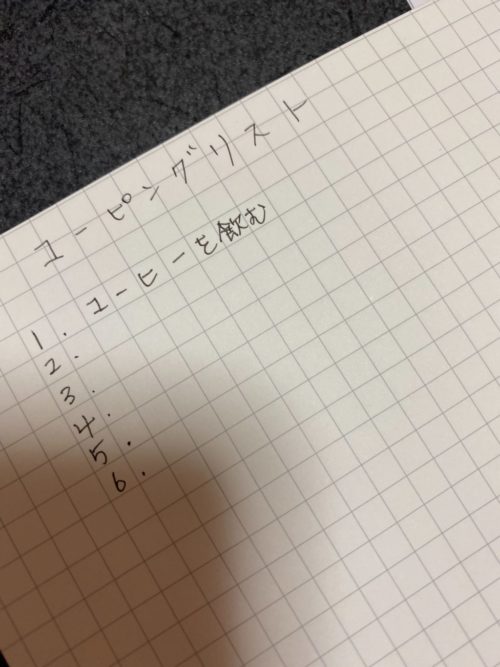 コーピングリスト
1. コーヒーを飲む
2.
3.
4.
5.
6.